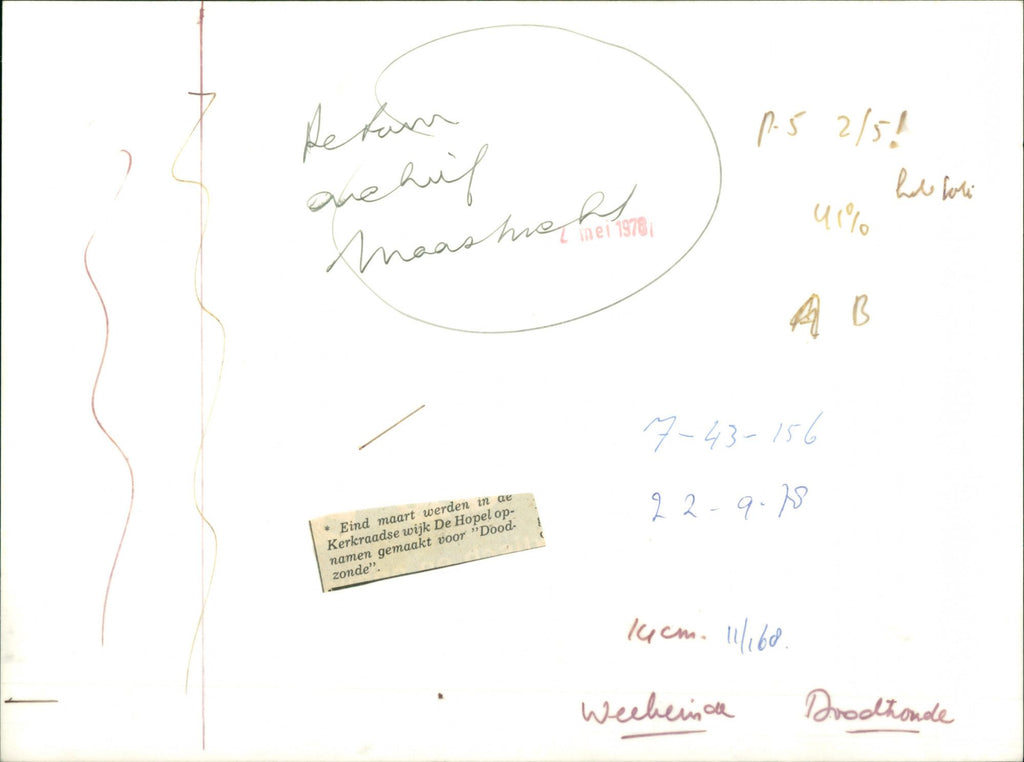 Retour
archief
Maastricht
2 mei 1978
p.5 2/5!
41%
A B
7-43-156
22-9-78
* Eind maart werden in de
Kerkraadse wijk De Hopel op-
namen gemaakt voor "Dood-
zonde".
14 cm. 11/168.
Weekeinde Doodzonde